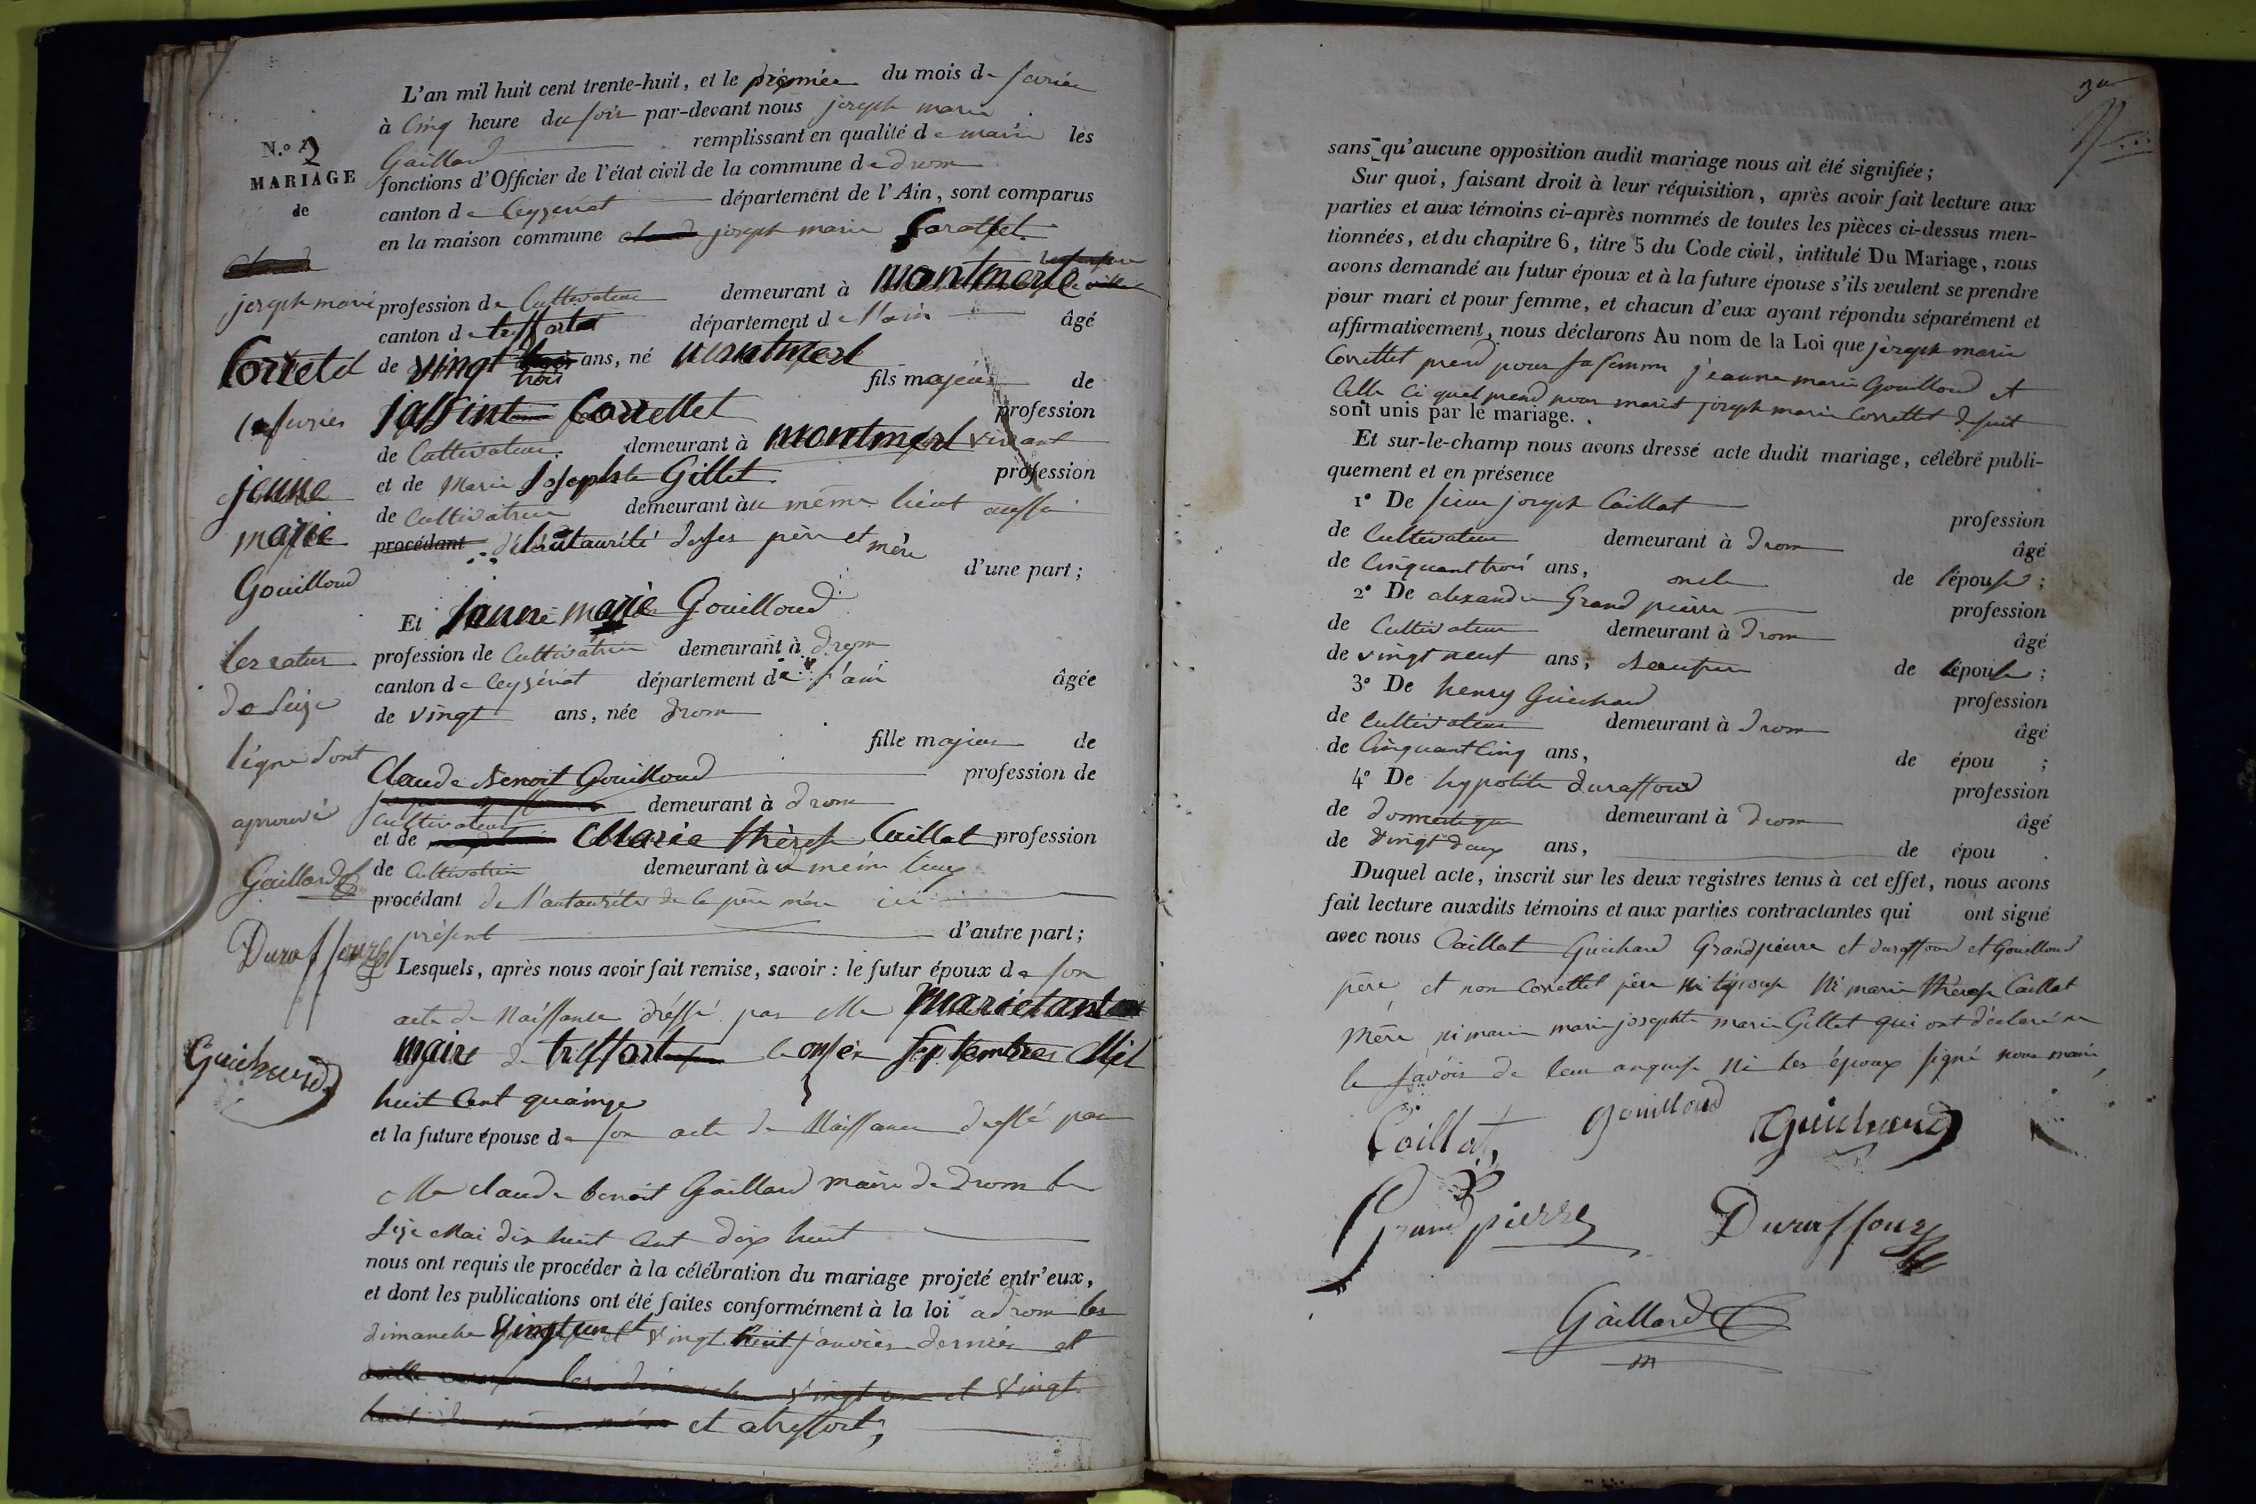 N.º 2
MARIAGE
de
joseph marie
Corretel
1er fevrier
jeune
marie
Gouilloud
les ratur
de seize
ligne sont
aprouvé
Gaillard
Duraffourg
Guichard
L'an mil huit cent trente-huit, et le premier du mois de fevrier
à Cinq heure du soir par-devant nous joseph marie
Gaillard remplissant en qualité de maire les
fonctions d'Officier de l'état civil de la commune de drom
canton de Ceyzeriat département de l'Ain, sont comparus
en la maison commune joseph marie
profession de Cultivateur demeurant à montmerle
canton de treffort département de l'ain âgé
de vingt trois ans, né montmerl
fils majeur de
jassint Correttet profession
de Cultivateur demeurant à montmerl vivant
et de Marie Josephte Gillet profession
de Cultivatrice demeurant au même lieut aussi
procédant de l'autaurité de ses père et mère
d'une part;
Et Jeanne marie Gouilloud
profession de Cultivatrice demeurant à drom
canton de Ceyzériat département de l'ain âgée
de vingt ans, née drom
fille majeur de
Claude Benoit Gouilloud profession de
cultivateur demeurant à drom
et de Marie thérese Caillat profession
de Cultivatrice demeurant à u meme lieux
procédant de l'autaurité de ce père mère ici
présent d'autre part;
Lesquels, après nous avoir fait remise, savoir : le futur époux de son
acte de Naissance dréssé par Me mariétant
maire de treffort le onze septembre Mil
huit Cent quainze
et la future épouse de son acte de Naissance dressé par
Me claude benoit Gaillard maire de drom le
seize Mai dix huit Cent dix huit
nous ont requis de procéder à la célébration du mariage projeté entr'eux,
et dont les publications ont été faites conformément à la loi a drom les
dimanche vingt un et vingt huit janvier dernier et
les dimanche vingt un et vingt
et a treffort,
3
sans qu'aucune opposition audit mariage nous ait été signifiée;
Sur quoi, faisant droit à leur réquisition, après avoir fait lecture aux
parties et aux témoins ci-après nommés de toutes les pièces ci-dessus men-
tionnées, et du chapitre 6, titre 5 du Code civil, intitulé Du Mariage, nous
avons demandé au futur époux et à la future épouse s'ils veulent se prendre
pour mari et pour femme, et chacun d'eux ayant répondu séparément et
affirmativement, nous déclarons Au nom de la Loi que joseph marie
Correttet prend pour sa femme jéanne marie Gouilloud et
Celle Ci quel prend pour marit joseph marie Correttet
sont unis par le mariage.
Et sur-le-champ nous avons dressé acte dudit mariage, célébré publi-
quement et en présence
1º De sieur joseph Caillat profession
de Cultivateur demeurant à drom âgé
de Cinquant trois ans, oncle de l'épouse;
2º De alexandre Grand pierre profession
de Cultivateur demeurant à drom âgé
de vingt neuf ans, beaufrere de l'épouse;
3º De henry Guichard profession
de cultivateur demeurant à drom âgé
de Cinquant Cinq ans, de épou ;
4º De hypolite duraffourd profession
de domestique demeurant à drom âgé
de vingt deux ans, de épou .
Duquel acte, inscrit sur les deux registres tenus à cet effet, nous avons
fait lecture auxdits témoins et aux parties contractantes qui ont signé
avec nous Caillat Guichard Grandpierre et duraffourd et Gouilloud
père et non Correttet père ni l'épouse Ni marie thérese Caillat
mère ni marie josephte marie Gillet qui ont déclaré ne
le savoir de leur enquise ni les époux signé nous maire
Caillat, Gouilloud Guichard
Grandpierre Duraffourg
Gaillard